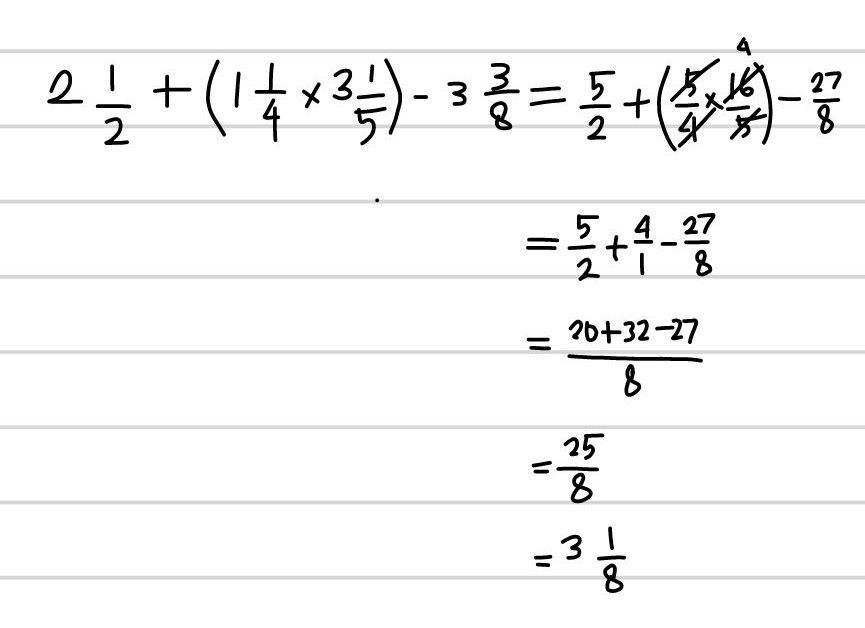 2 1/2 + (1 1/4 × 3 1/5) - 3 3/8 = 5/2 + (5/4 × 16/5) - 27/8
4
= 5/2 + 4/1 - 27/8
= 20+32-27/8
= 25/8
= 3 1/8